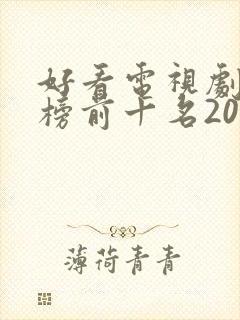 好看電視劇
榜前十名20
薄荷青青